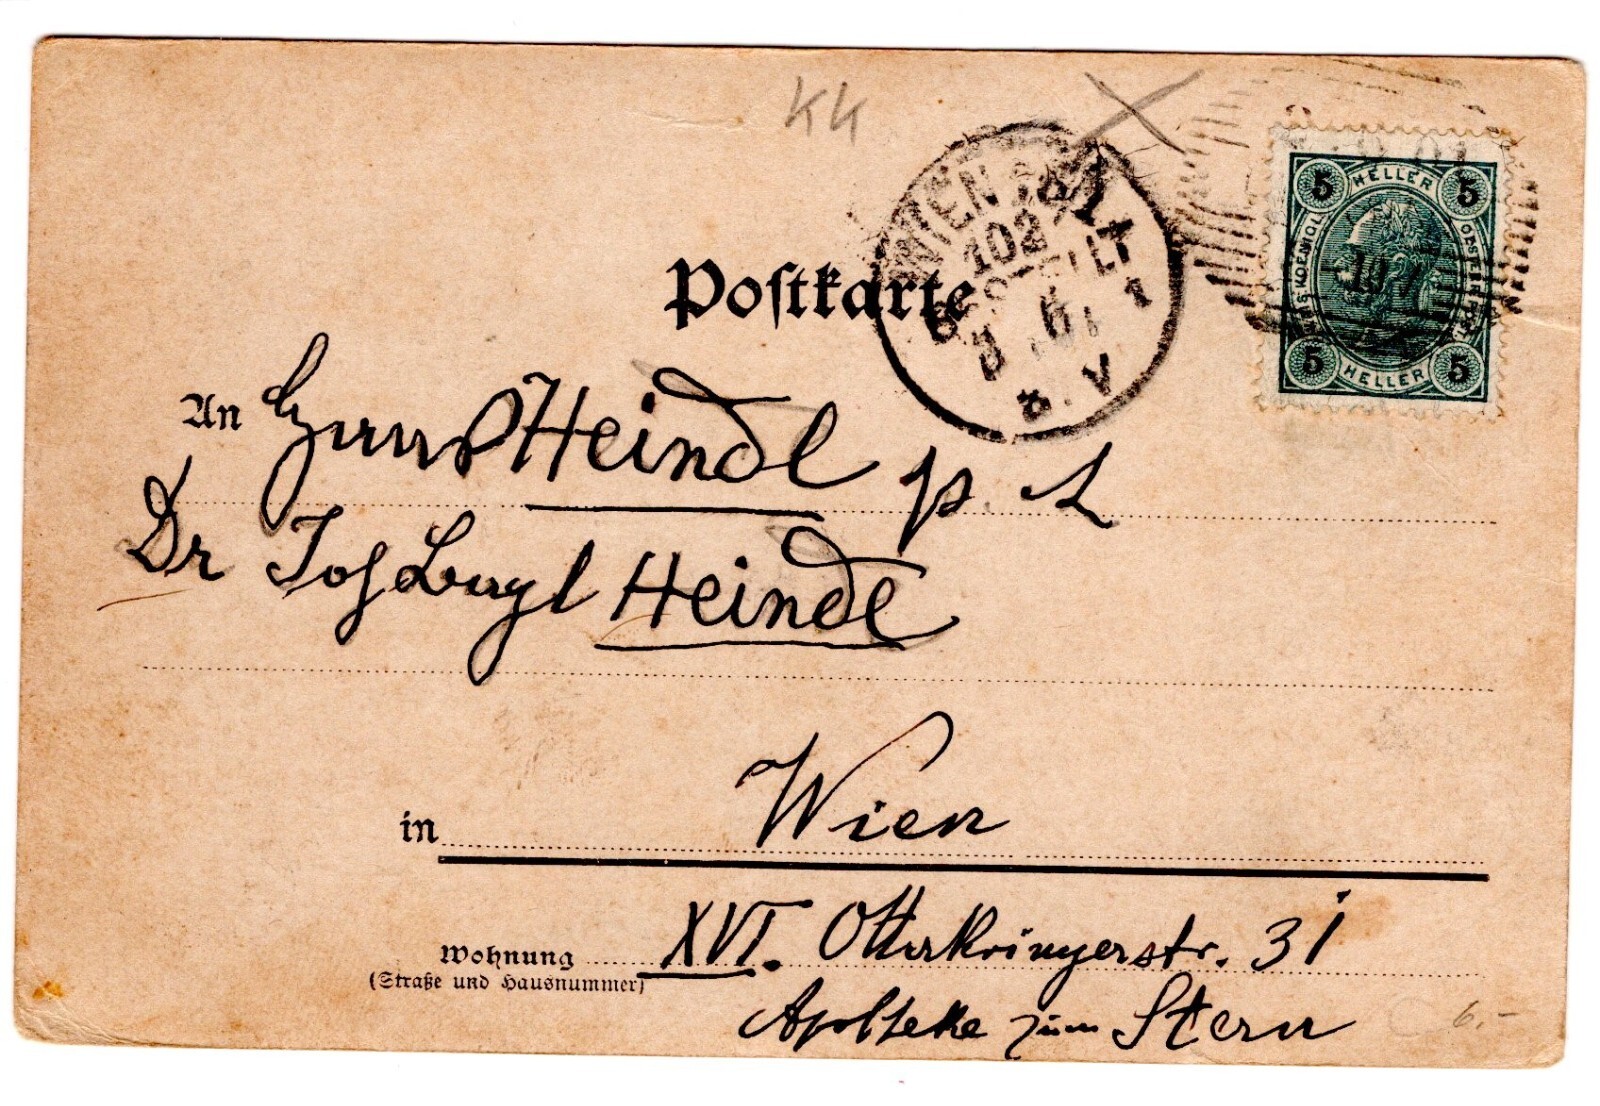 KK
WIEN
102
BESTELLT
6
1
8.V
5 HELLER 5
5 HELLER 5
Postkarte
An Hans Heindl p. A
Dr Jos Heindl
in Wien
Wohnung XVI. Ottakringerstr. 31
(Straße und Hausnummer)
Apotheke zum Stern
6.-